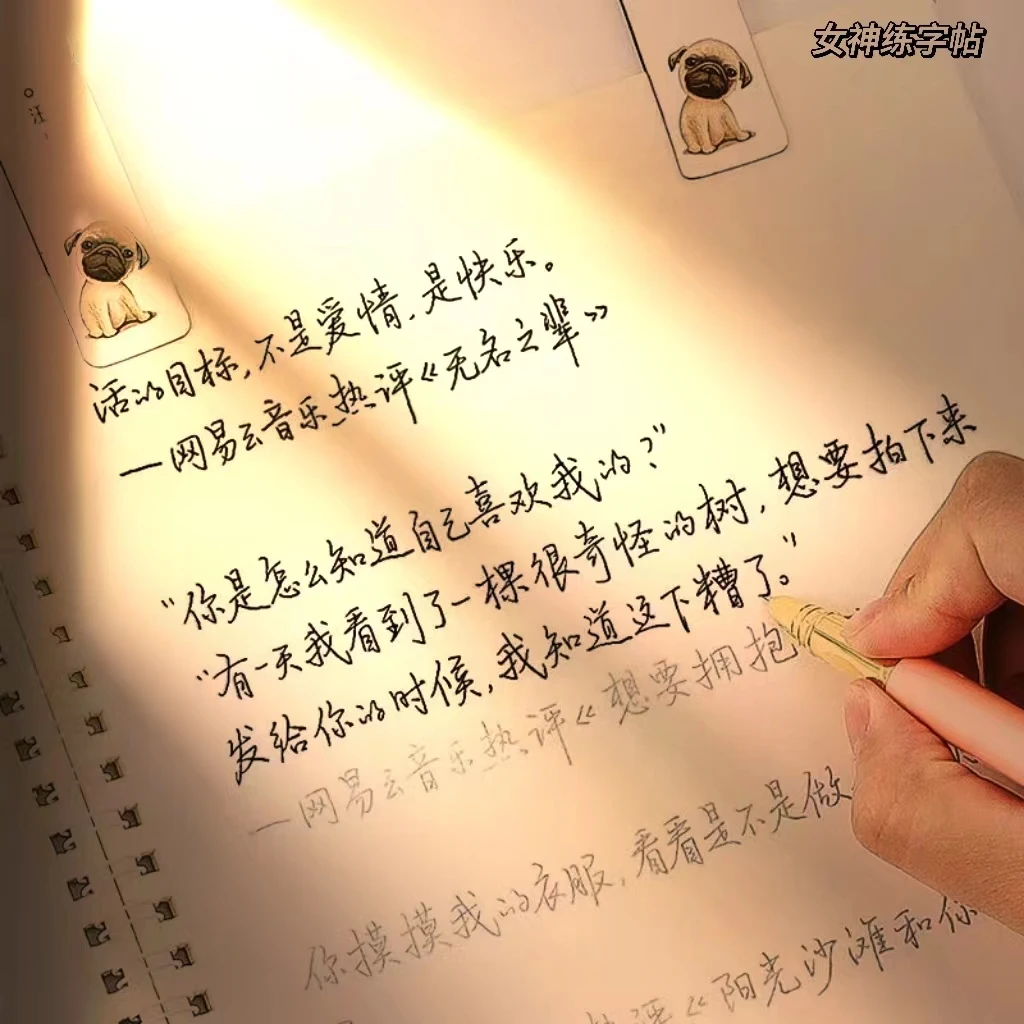 女神练字帖
汪
活的目标,不是爱情,是快乐。
—网易云音乐热评《无名之辈》
"你是怎么知道自己喜欢我的?"
"有一天我看到了一棵很奇怪的树,想要拍下来
发给你的时候,我知道这下糟了。"
—网易云音乐热评《想要拥抱
你摸摸我的衣服,看看是不是做
热评《阳光沙滩和你